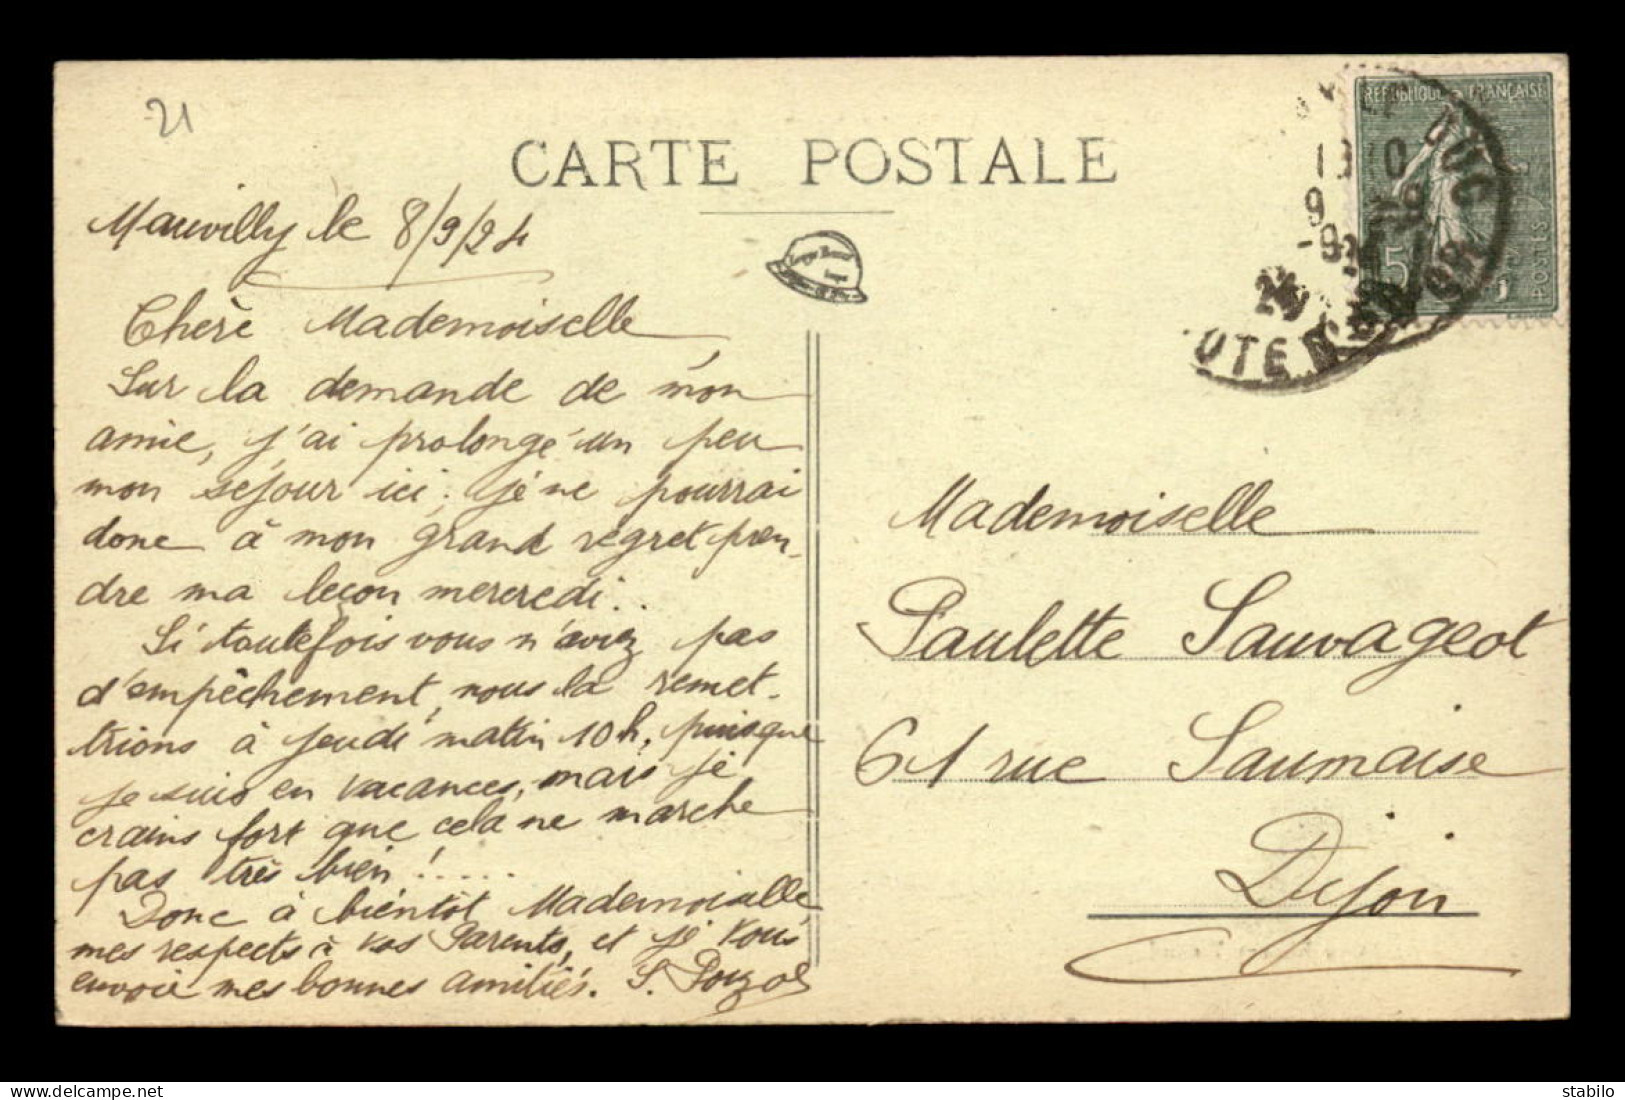 21
CARTE POSTALE
Mauvilly le 8/9/24
Chère Mademoiselle
Sur la demande de mon
amie, j'ai prolongé un peu
mon séjour ici; je ne pourrai
donc à mon grand regret pren-
dre ma leçon mercredi..
Si toutefois vous n'aviez pas
d'empêchement, nous la remet-
trions à jeudi matin 10h, puisque
je suis en vacances, mais je
crains fort que cela ne marche
pas très bien!.....
Donc à bientôt Mademoiselle
mes respects à vos Parents, et je vous
envoie mes bonnes amitiés. S. Pouzol
REPUBLIQUE FRANÇAISE
POSTES
DUC
9
-9
24
OTE D'OR
Mademoiselle
Paulette Sauvageot
61 rue Saumaise
Dijon
stabilo